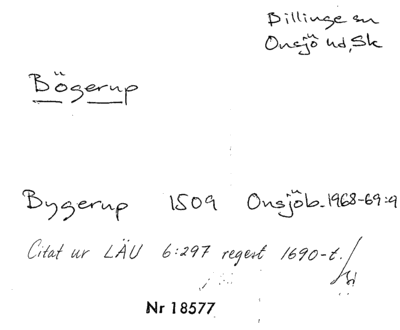 Billinge sn
Onsjö hd, Sk
Bögerup
Bygerup 1509 Onsjöb. 1968-69:9
Citat ur LÄU 6:297 regest 1690-t.
Nr 18577